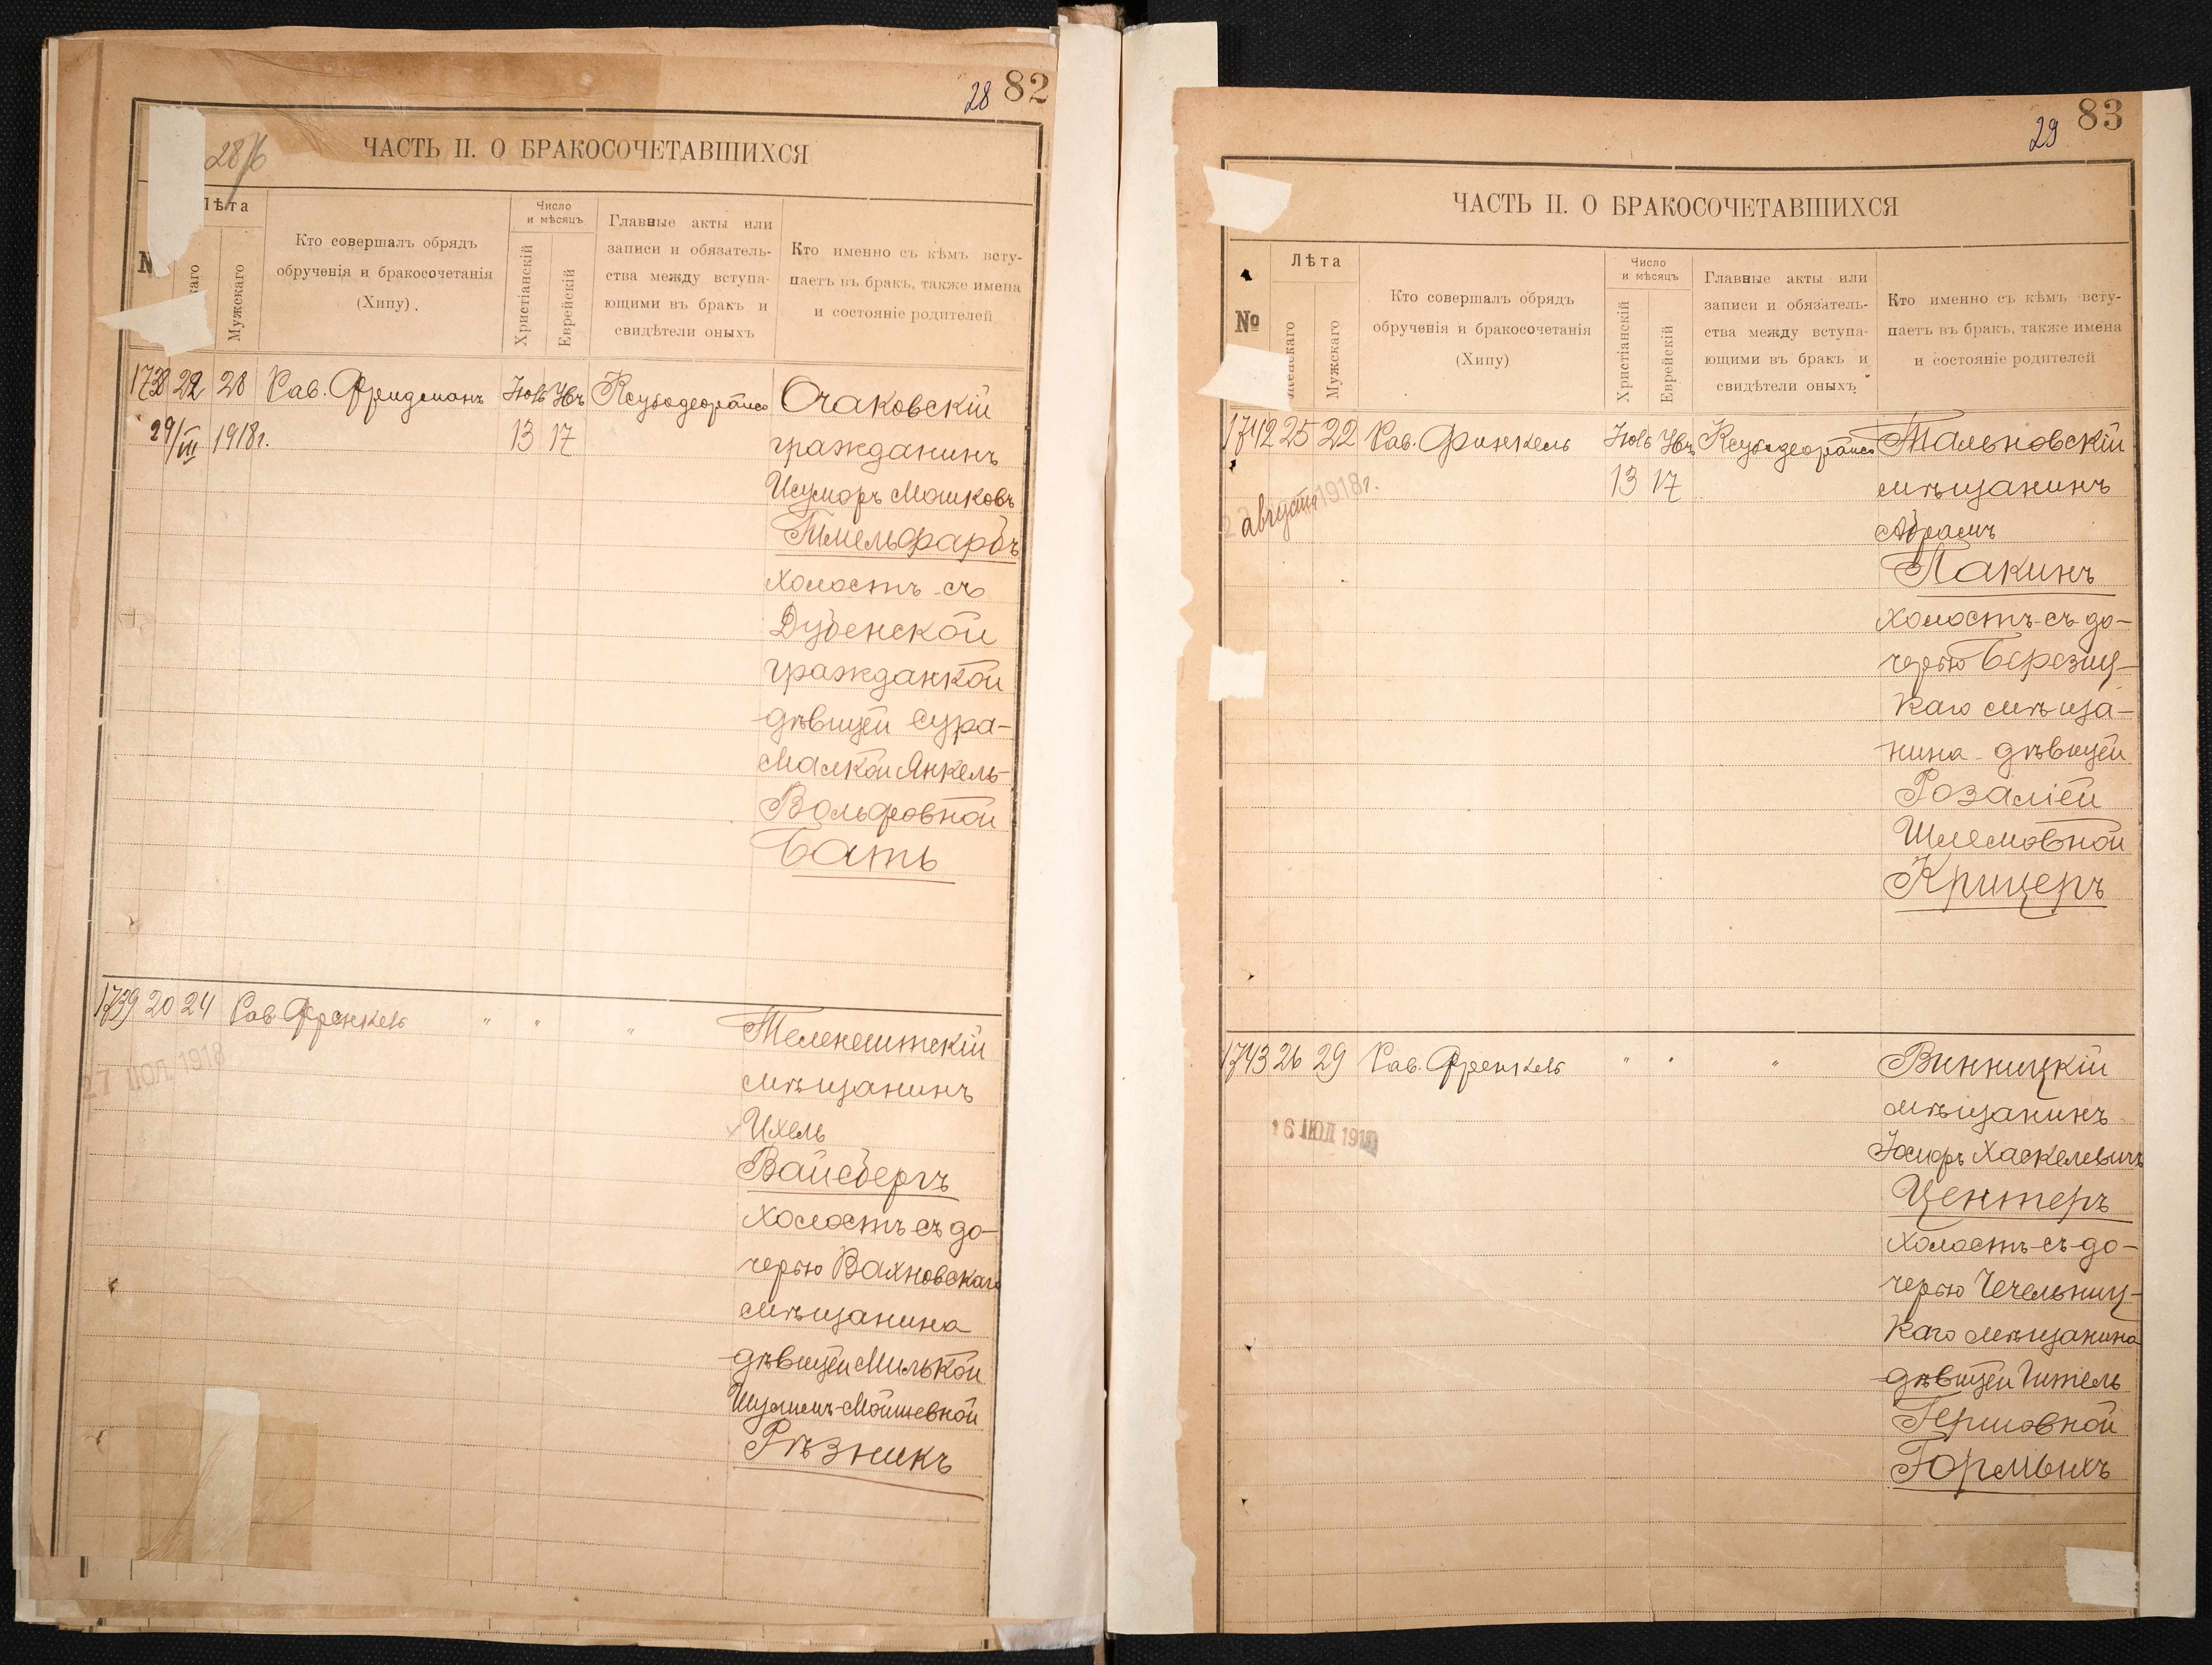 28 82
28/6
ЧАСТЬ II. О БРАКОСОЧЕТАВШИХСЯ
Лѣта
Мужскаго
Кто совершалъ обрядъ
обрученія и бракосочетанія
(Хипу).
Число
и мѣсяцъ
Христіанскій
Еврейскій
Главные акты или
записи и обязатель-
ства между вступа-
ющими въ бракъ и
свидѣтели оныхъ
Кто именно съ кѣмъ всту-
паетъ въ бракъ, также имена
и состояніе родителей
1738 22 28 Рав. Фридманъ Очаковскій
29/III 1918г. 13 17 гражданинъ
Машковъ
холостъ съ
Дубенской
гражданкой
дѣвицей Сура-
Малкой Янкель-
Вольфовной
Бать
1739 20 24 Рав. Френкель " " " Теленештскій
27 ІЮЛ 1918 мѣщанинъ
Ихель
Вайсбергъ
холостъ съ до-
черью Вахновскаго
мѣщанина
дѣвицей Милькой
Шулимъ-Мойшевной
Рѣзникъ
29 83
ЧАСТЬ II. О БРАКОСОЧЕТАВШИХСЯ
№
Лѣта
Мужскаго
Кто совершалъ обрядъ
обрученія и бракосочетанія
(Хипу)
Число
и мѣсяцъ
Христіанскій
Еврейскій
Главные акты или
записи и обязатель-
ства между вступа-
ющими въ бракъ и
свидѣтели оныхъ
Кто именно съ кѣмъ всту-
паетъ въ бракъ, также имена
и состояніе родителей
1742 25 22 Рав. Финкель Тальновскій
августа 1918г. 13 17 мѣщанинъ
Абрамъ
Лакинъ
холостъ съ до-
черью Березиц-
каго мѣща-
нина дѣвицей
Розаліей
Шлемовной
Крицеръ
1743 26 29 Рав. Френкель " " " Винницкій
мѣщанинъ
16 ІЮЛ 191 Іосифъ Хаскелевичъ
Центеръ
холостъ съ до-
черью Чечельниц-
каго мѣщанина
дѣвицей Гитель
Гершовной